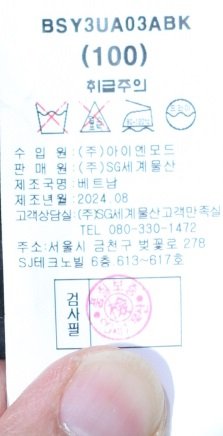 BSY3UA03ABK
(100)
취급주의
수 입 원 : (주)아이엔모드
판 매 원 : (주)SG세계물산
제조국명 : 베트남
제조년월 : 2024.08
고객상담실 : (주)SG세계물산고객만족실
TEL 080-330-1472
주소:서울시 금천구 벚꽃로 278
SJ테크노빌 6층 613~617호
검사필